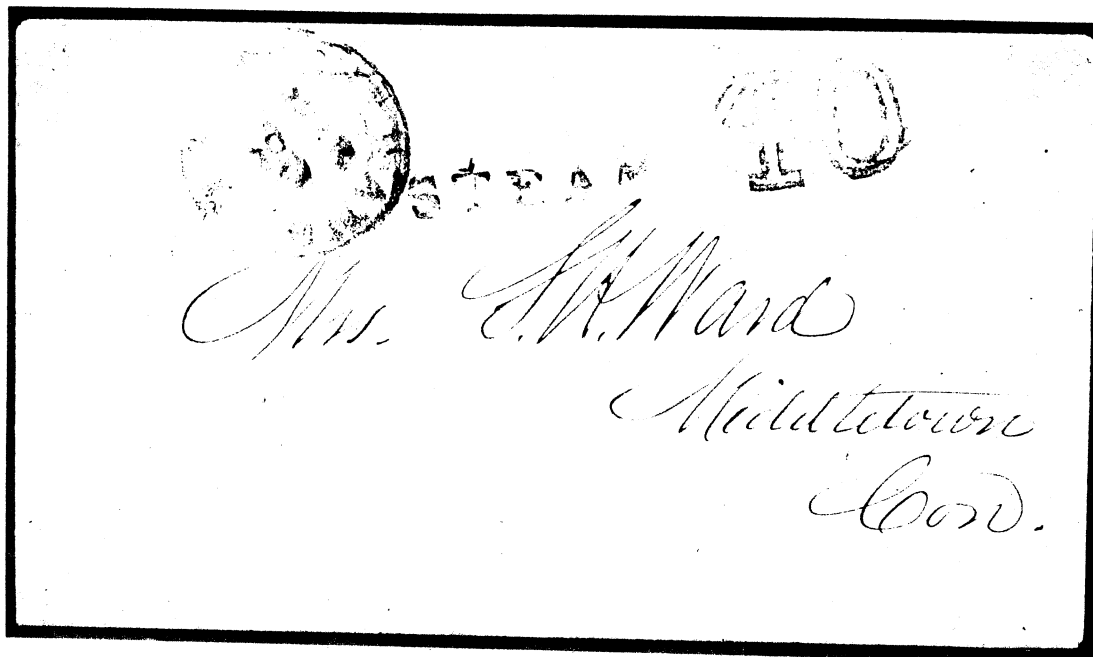 STEAM 10
Mrs. S. H. Ward
Middletown
Con.